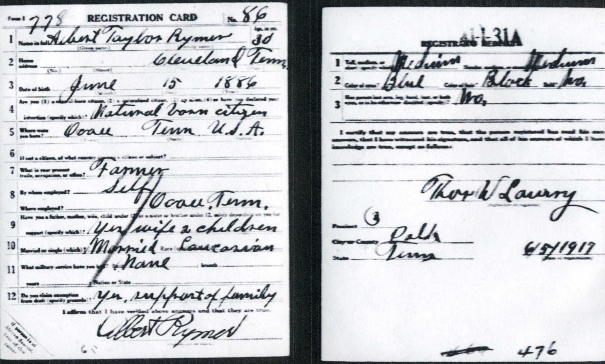 Form 1 778 REGISTRATION CARD No. 86
1 Name in full Albert Taylor Rymer Age, in yrs. 30
(Given name) (Family name)
2 Home address Cleveland Tenn.
(No.) (Street)
3 Date of birth June 15 1886
4 Are you (1) a natural-born citizen, (2) a naturalized citizen, (3) an alien, (4) or have you declared your
intention (specify which)? Natural born citizen
5 Where were you born? Ocoee Tenn. U.S.A.
6 If not a citizen, of what country are you a citizen or subject?
7 What is your present trade, occupation, or office? Farmer
8 By whom employed? Self
Where employed? Ocoee Tenn.
9 Have you a father, mother, wife, child under 12, or a sister or brother under 12, solely dependent on you for
support (specify which)? Yes, wife 2 children
10 Married or single (which)? Married Race (specify which)? Caucasian
11 What military service have you had? None branch
years Nation or State
12 Do you claim exemption from draft (specify grounds)? Yes, support of family
I affirm that I have verified above answers and that they are true.
Albert Rymer
41-1-31A
REGISTRAR'S REPORT
1 Tall, medium, or short (specify which)? Medium Slender, medium, or stout (which)? Medium
2 Color of eyes? Blue Color of hair? Black Bald? No.
3 Has person lost arm, leg, hand, foot, or both No.
I certify that my answers are true, that the person registered has read his own
answers, that I have witnessed his signature, and that all of his answers of which I have
knowledge are true, except as follows:
Thos W Lowry
Precinct 3
City or County Polk
State Tenn 6/5/1917
476